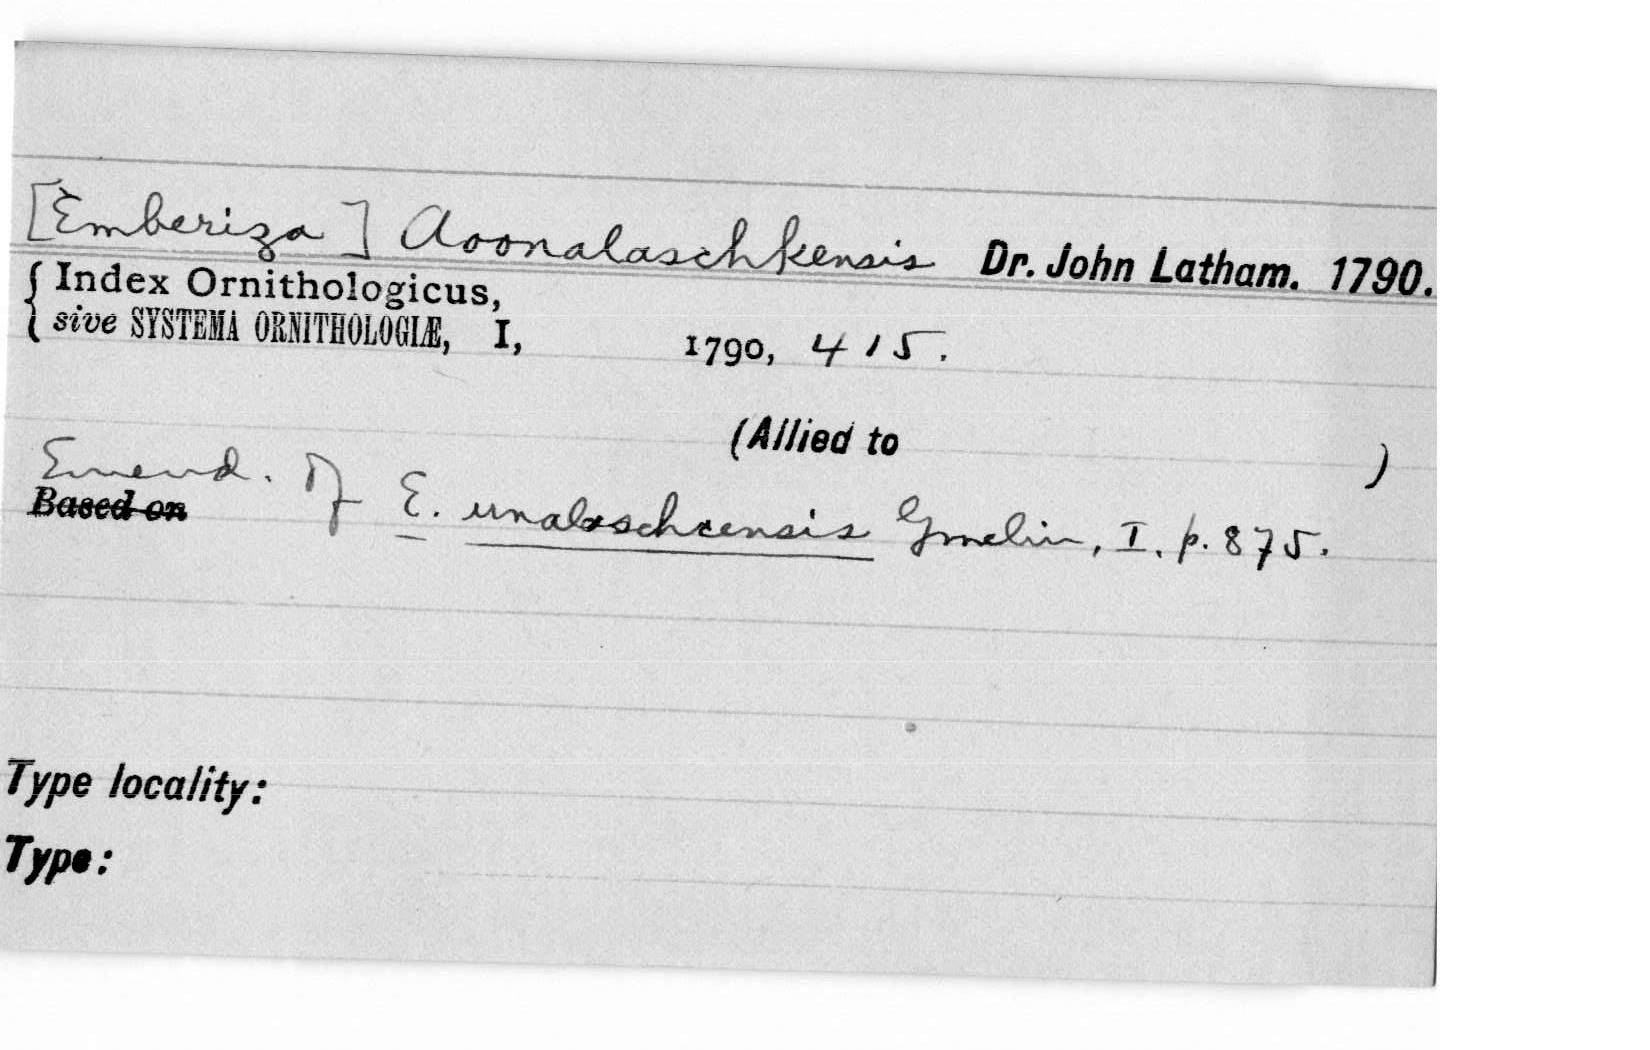 [Emberiza] Aoonalaschkensis Dr. John Latham. 1790.
{ Index Ornithologicus,
sive SYSTEMA ORNITHOLOGIÆ, I, 1790, 415.
(Allied to )
Emend. of E. unalaschcensis Gmelin, I. p. 875.
Based on
Type locality:
Type: